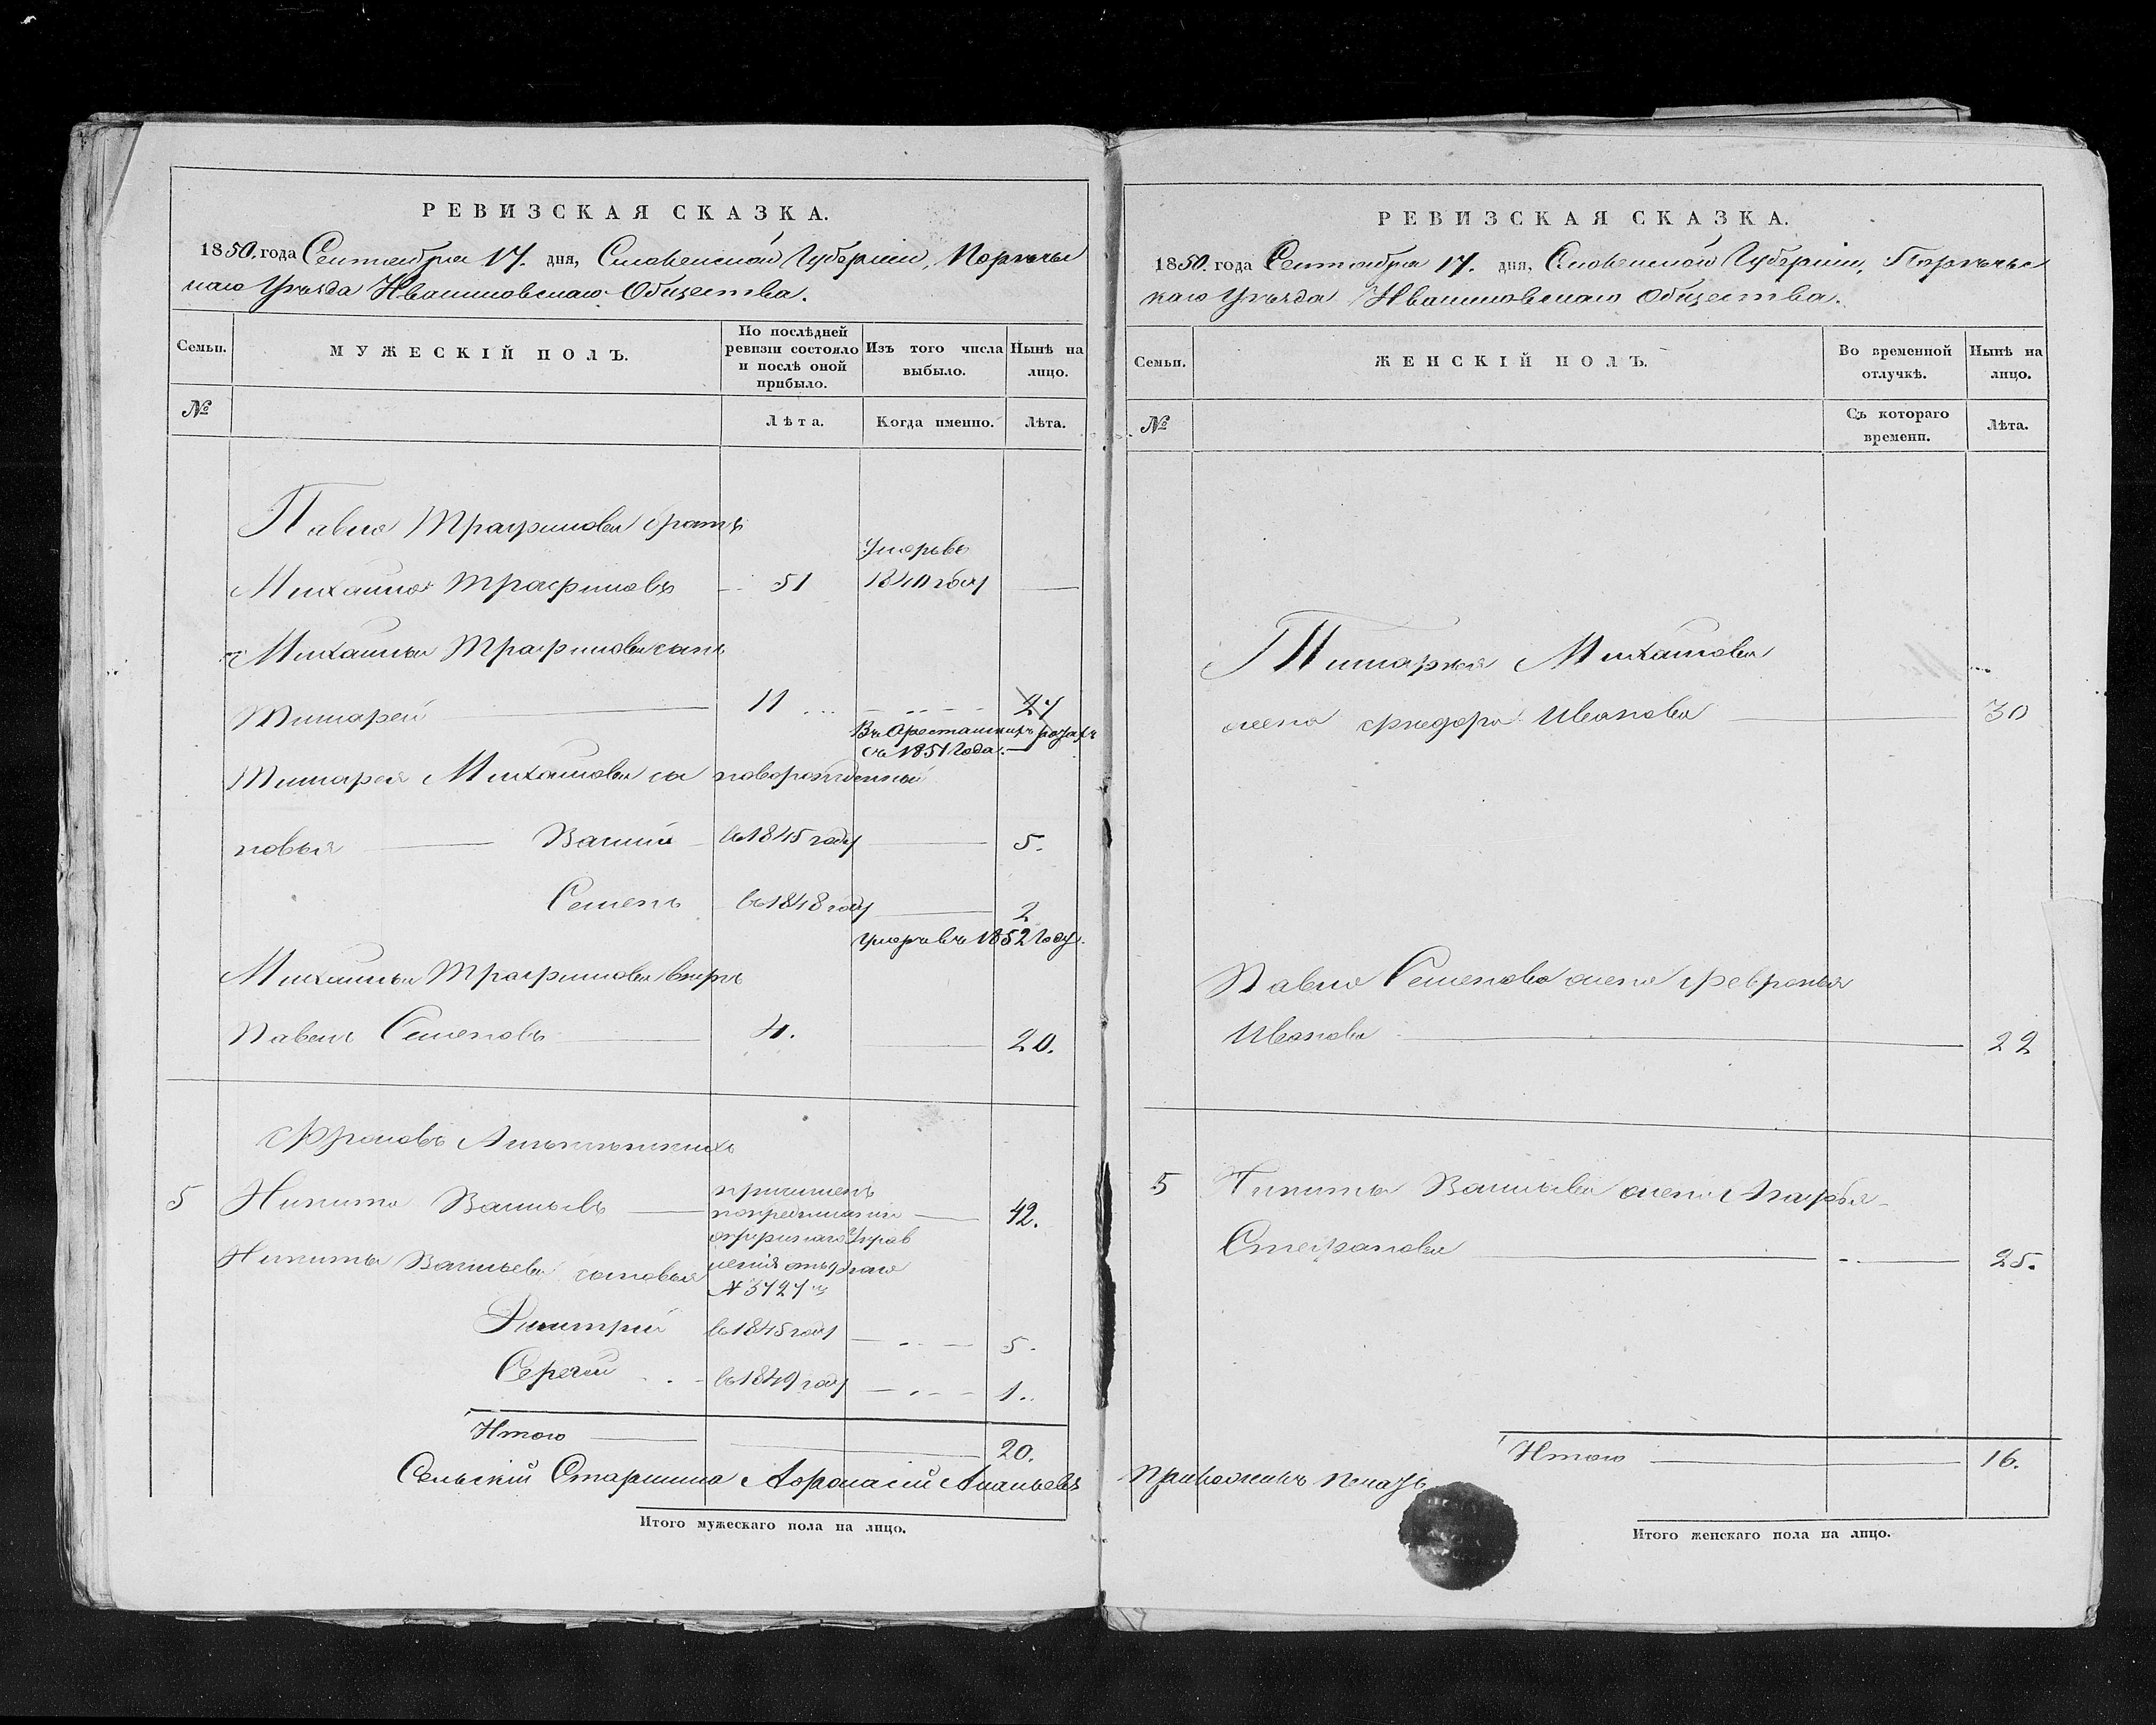 РЕВИЗСКАЯ СКАЗКА.
1850. года Сентября 17. дня, Смоленской Губернiи, Порѣчьс
каго Уѣзда Ивашковскаго Общества.
Семьи.
МУЖЕСКIЙ ПОЛЪ.
По послѣдней ревизiи состояло и послѣ оной прибыло.
Изъ того числа выбыло.
Нынѣ на лицо.
№
Лѣта.
Когда именно.
Лѣта.
Павла Трафимова братъ
Умеръ въ
Михаила Трафимовъ 51 1840 году
Михаилы Трафимова сынъ
Тимофей 11 27
Въ Арестанскихъ ротахъ
съ 1851 Года.
Михайлова новорожденный
Василiй въ 1845 году 5.
Семенъ въ 1848 году 2
умеръ въ 1852 Году.
Михаилы Трафимова
Павелъ Семеновъ 4. 20.
5 Никита Васильевъ 42.
Никиты Васильева сыновья
№ 3727
Дмитрiй въ 1845 году 5.
Сергей въ 1849 году 1.
Итого 20.
Сельскiй Старшина Афонасiй Ананьевъ
Итого мужескаго пола на лицо.
РЕВИЗСКАЯ СКАЗКА.
1850. года Сентября 17. дня, Смоленской Губернiи, Порѣчьс
каго Уѣзда Ивашковскаго Общества.
Семьи.
ЖЕНСКIЙ ПОЛЪ.
Во временной отлучкѣ.
Нынѣ на лицо.
№
Съ котораго времени.
Лѣта.
Михайлова
жена Федора Иванова 30
Павла Семенова жена Февронья
Иванова 22
5 Никиты Васильева жена Агафья
Стефанова 25.
Итого 16.
приложилъ печать
Итого женскаго пола на лицо.